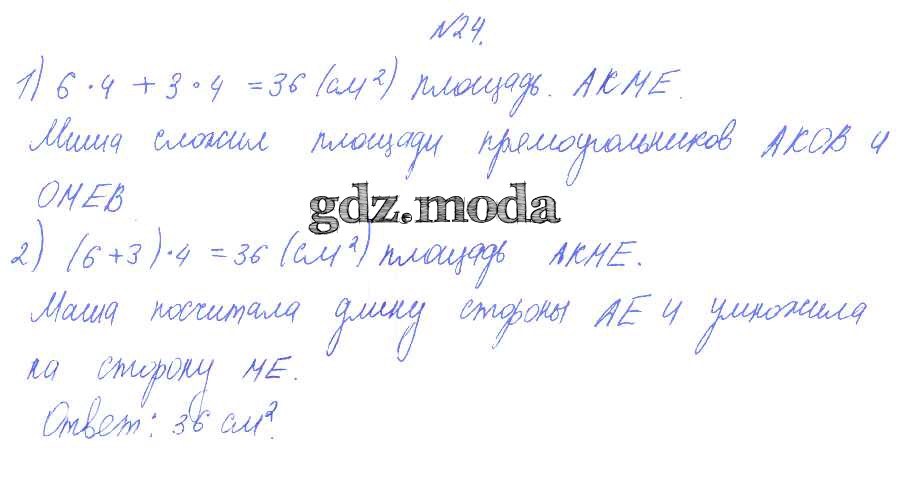 №24.
1) 6·4 + 3·4 = 36 (см²) площадь. АКМЕ.
Миша сложил площади прямоугольников АКОВ и
ОМЕВ
gdz.moda
2) (6+3)·4 = 36 (см²) площадь АКМЕ.
Маша посчитала длину стороны АЕ и умножила
на сторону МЕ.
Ответ: 36 см².